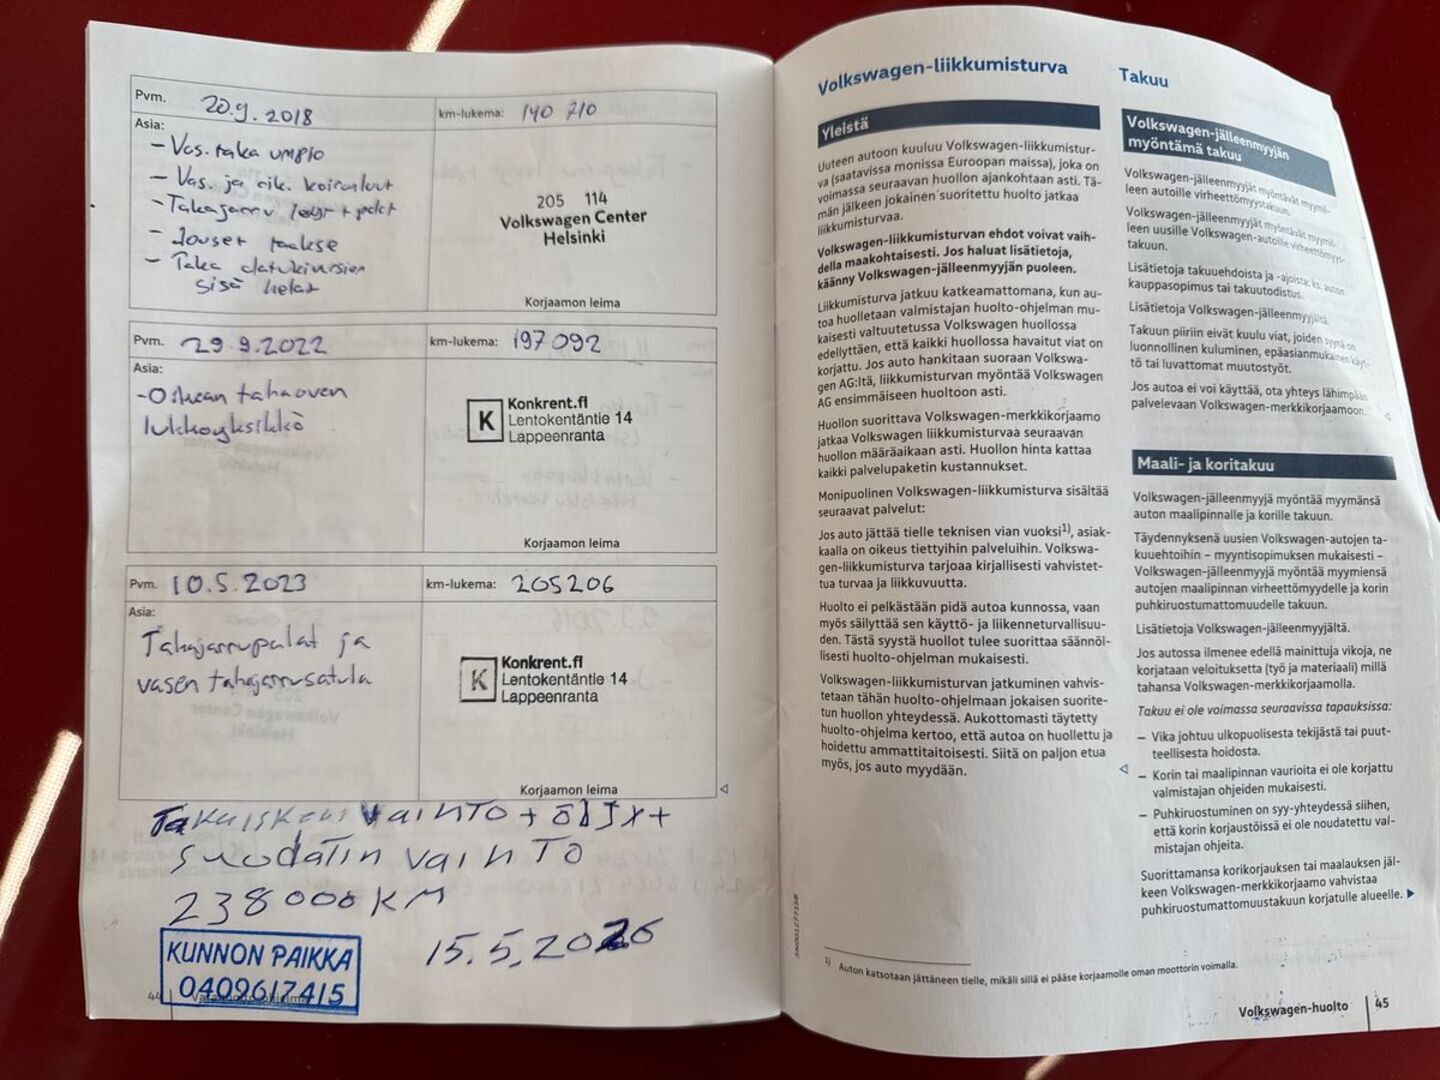 Pvm. 20.9.2018
km-lukema: 140 210
Asia:
- Vas. taka umpio
- Vas. ja oik. koiranluut
- Takajarru levyt + palat
- Jouset taakse
- Taka alatukivarsien
sisä helat
205 114
Volkswagen Center
Helsinki
Korjaamon leima
Pvm. 29.9.2022
km-lukema: 197092
Asia:
- Oikean takaoven
lukkoyksikkö
K
Konkrent.fi
Lentokentäntie 14
Lappeenranta
Korjaamon leima
Pvm. 10.5.2023
km-lukema: 205206
Asia:
Takajarrupalat ja
vasen takajarrusatula
K
Konkrent.fi
Lentokentäntie 14
Lappeenranta
Korjaamon leima
VAIHTO + ÖLJY +
SUODATIN VAIHTO
238000 KM
15.5.2026
KUNNON PAIKKA
0409617415
44
Volkswagen-liikkumisturva
Yleistä
Uuteen autoon kuuluu Volkswagen-liikkumistur-
va (saatavissa monissa Euroopan maissa), joka on
voimassa seuraavan huollon ajankohtaan asti. Tä-
män jälkeen jokainen suoritettu huolto jatkaa
liikkumisturvaa.
Volkswagen-liikkumisturvan ehdot voivat vaih-
della maakohtaisesti. Jos haluat lisätietoja,
käänny Volkswagen-jälleenmyyjän puoleen.
Liikkumisturva jatkuu katkeamattomana, kun au-
toa huolletaan valmistajan huolto-ohjelman mu-
kaisesti valtuutetussa Volkswagen huollossa
edellyttäen, että kaikki huollossa havaitut viat on
korjattu. Jos auto hankitaan suoraan Volkswa-
gen AG:ltä, liikkumisturvan myöntää Volkswagen
AG ensimmäiseen huoltoon asti.
Huollon suorittava Volkswagen-merkkikorjaamo
jatkaa Volkswagen liikkumisturvaa seuraavan
huollon määräaikaan asti. Huollon hinta kattaa
kaikki palvelupaketin kustannukset.
Monipuolinen Volkswagen-liikkumisturva sisältää
seuraavat palvelut:
Jos auto jättää tielle teknisen vian vuoksi1), asiak-
kaalla on oikeus tiettyihin palveluihin. Volkswa-
gen-liikkumisturva tarjoaa kirjallisesti vahvistet-
tua turvaa ja liikkuvuutta.
Huolto ei pelkästään pidä autoa kunnossa, vaan
myös säilyttää sen käyttö- ja liikenneturvallisuu-
den. Tästä syystä huollot tulee suorittaa säännöl-
lisesti huolto-ohjelman mukaisesti.
Volkswagen-liikkumisturvan jatkuminen vahvis-
tetaan tähän huolto-ohjelmaan jokaisen suorite-
tun huollon yhteydessä. Aukottomasti täytetty
huolto-ohjelma kertoo, että autoa on huollettu ja
hoidettu ammattitaitoisesti. Siitä on paljon etua
myös, jos auto myydään.
Takuu
Volkswagen-jälleenmyyjän
myöntämä takuu
Volkswagen-jälleenmyyjät myöntävät myymil-
leen autoille virheettömyystakuun.
Volkswagen-jälleenmyyjät myöntävät myymil-
leen uusille Volkswagen-autoille virheettömyys-
takuun.
Lisätietoja takuuehdoista ja -ajoista: ks. auton
kauppasopimus tai takuutodistus.
Lisätietoja Volkswagen-jälleenmyyjältä.
Takuun piiriin eivät kuulu viat, joiden syynä on
luonnollinen kuluminen, epäasianmukainen käyt-
tö tai luvattomat muutostyöt.
Jos autoa ei voi käyttää, ota yhteys lähimpään
palvelevaan Volkswagen-merkkikorjaamoon.
Maali- ja koritakuu
Volkswagen-jälleenmyyjä myöntää myymänsä
auton maalipinnalle ja korille takuun.
Täydennyksenä uusien Volkswagen-autojen ta-
kuuehtoihin – myyntisopimuksen mukaisesti –
Volkswagen-jälleenmyyjä myöntää myymiensä
autojen maalipinnan virheettömyydelle ja korin
puhkiruostumattomuudelle takuun.
Lisätietoja Volkswagen-jälleenmyyjältä.
Jos autossa ilmenee edellä mainittuja vikoja, ne
korjataan veloituksetta (työ ja materiaali) millä
tahansa Volkswagen-merkkikorjaamolla.
Takuu ei ole voimassa seuraavissa tapauksissa:
– Vika johtuu ulkopuolisesta tekijästä tai puut-
teellisesta hoidosta.
– Korin tai maalipinnan vaurioita ei ole korjattu
valmistajan ohjeiden mukaisesti.
– Puhkiruostuminen on syy-yhteydessä siihen,
että korin korjaustöissä ei ole noudatettu val-
mistajan ohjeita.
Suorittamansa korikorjauksen tai maalauksen jäl-
keen Volkswagen-merkkikorjaamo vahvistaa
puhkiruostumattomuustakuun korjatulle alueelle.
1) Auton katsotaan jättäneen tielle, mikäli sillä ei pääse korjaamolle oman moottorin voimalla.
Volkswagen-huolto 45